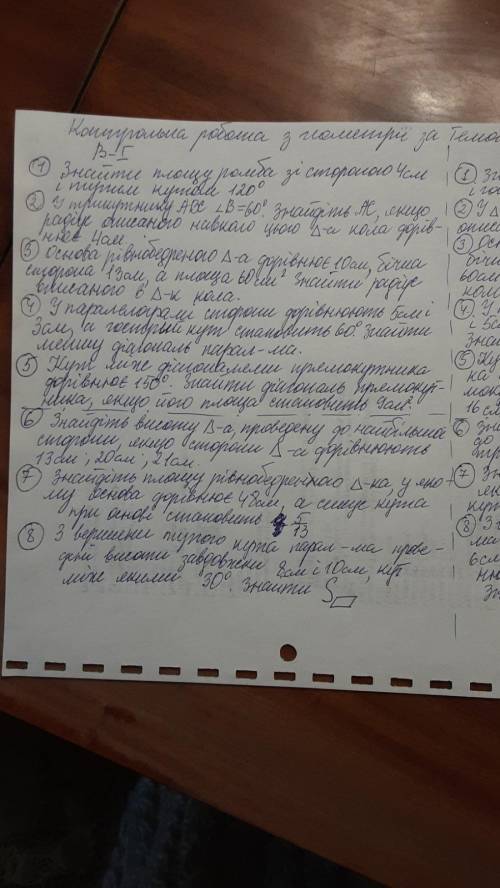 Контрольна робота з геометрії за темою
В-І
① Знайти площу ромба зі стороною 4см
і тупим кутом 120°
② У трикутнику АВС ∠В=60°. Знайдіть АС, якщо
радіус описаного навколо цього Δ-а кола дорів-
нює 4см.
③ Основа рівнобедреного Δ-а дорівнює 10см, бічна
сторона 13см, а площа 60см². Знайти радіус
вписаного в Δ-к кола.
④ У паралелограмі сторони дорівнюють 5см і
3см, а гострий кут становить 60°. Знайти
меншу діагональ парал-ма.
⑤ Кут між діагоналями прямокутника
дорівнює 150°. Знайти діагональ прямокут-
ника, якщо його площа становить 9см².
⑥ Знайдіть висоту Δ-а, проведену до найбільшої
сторони, якщо сторони Δ-а дорівнюють
13см, 20см, 21см.
⑦ Знайдіть площу рівнобедреного Δ-ка у яко-
му основа дорівнює 48см, а синус кута
при основі становить 5/13
⑧ З вершини тупого кута парал-ма прове-
дені висоти завдовжки 8см і 10см, кут
між якими 30°. Знайти S▱
① Зн
② У Δ
описа
③ Ос
бічн
60см
④ У
Зна
⑤ Ку
на
16 с
⑥ Зна
до
⑦ Зн
⑧ З
ма
6см